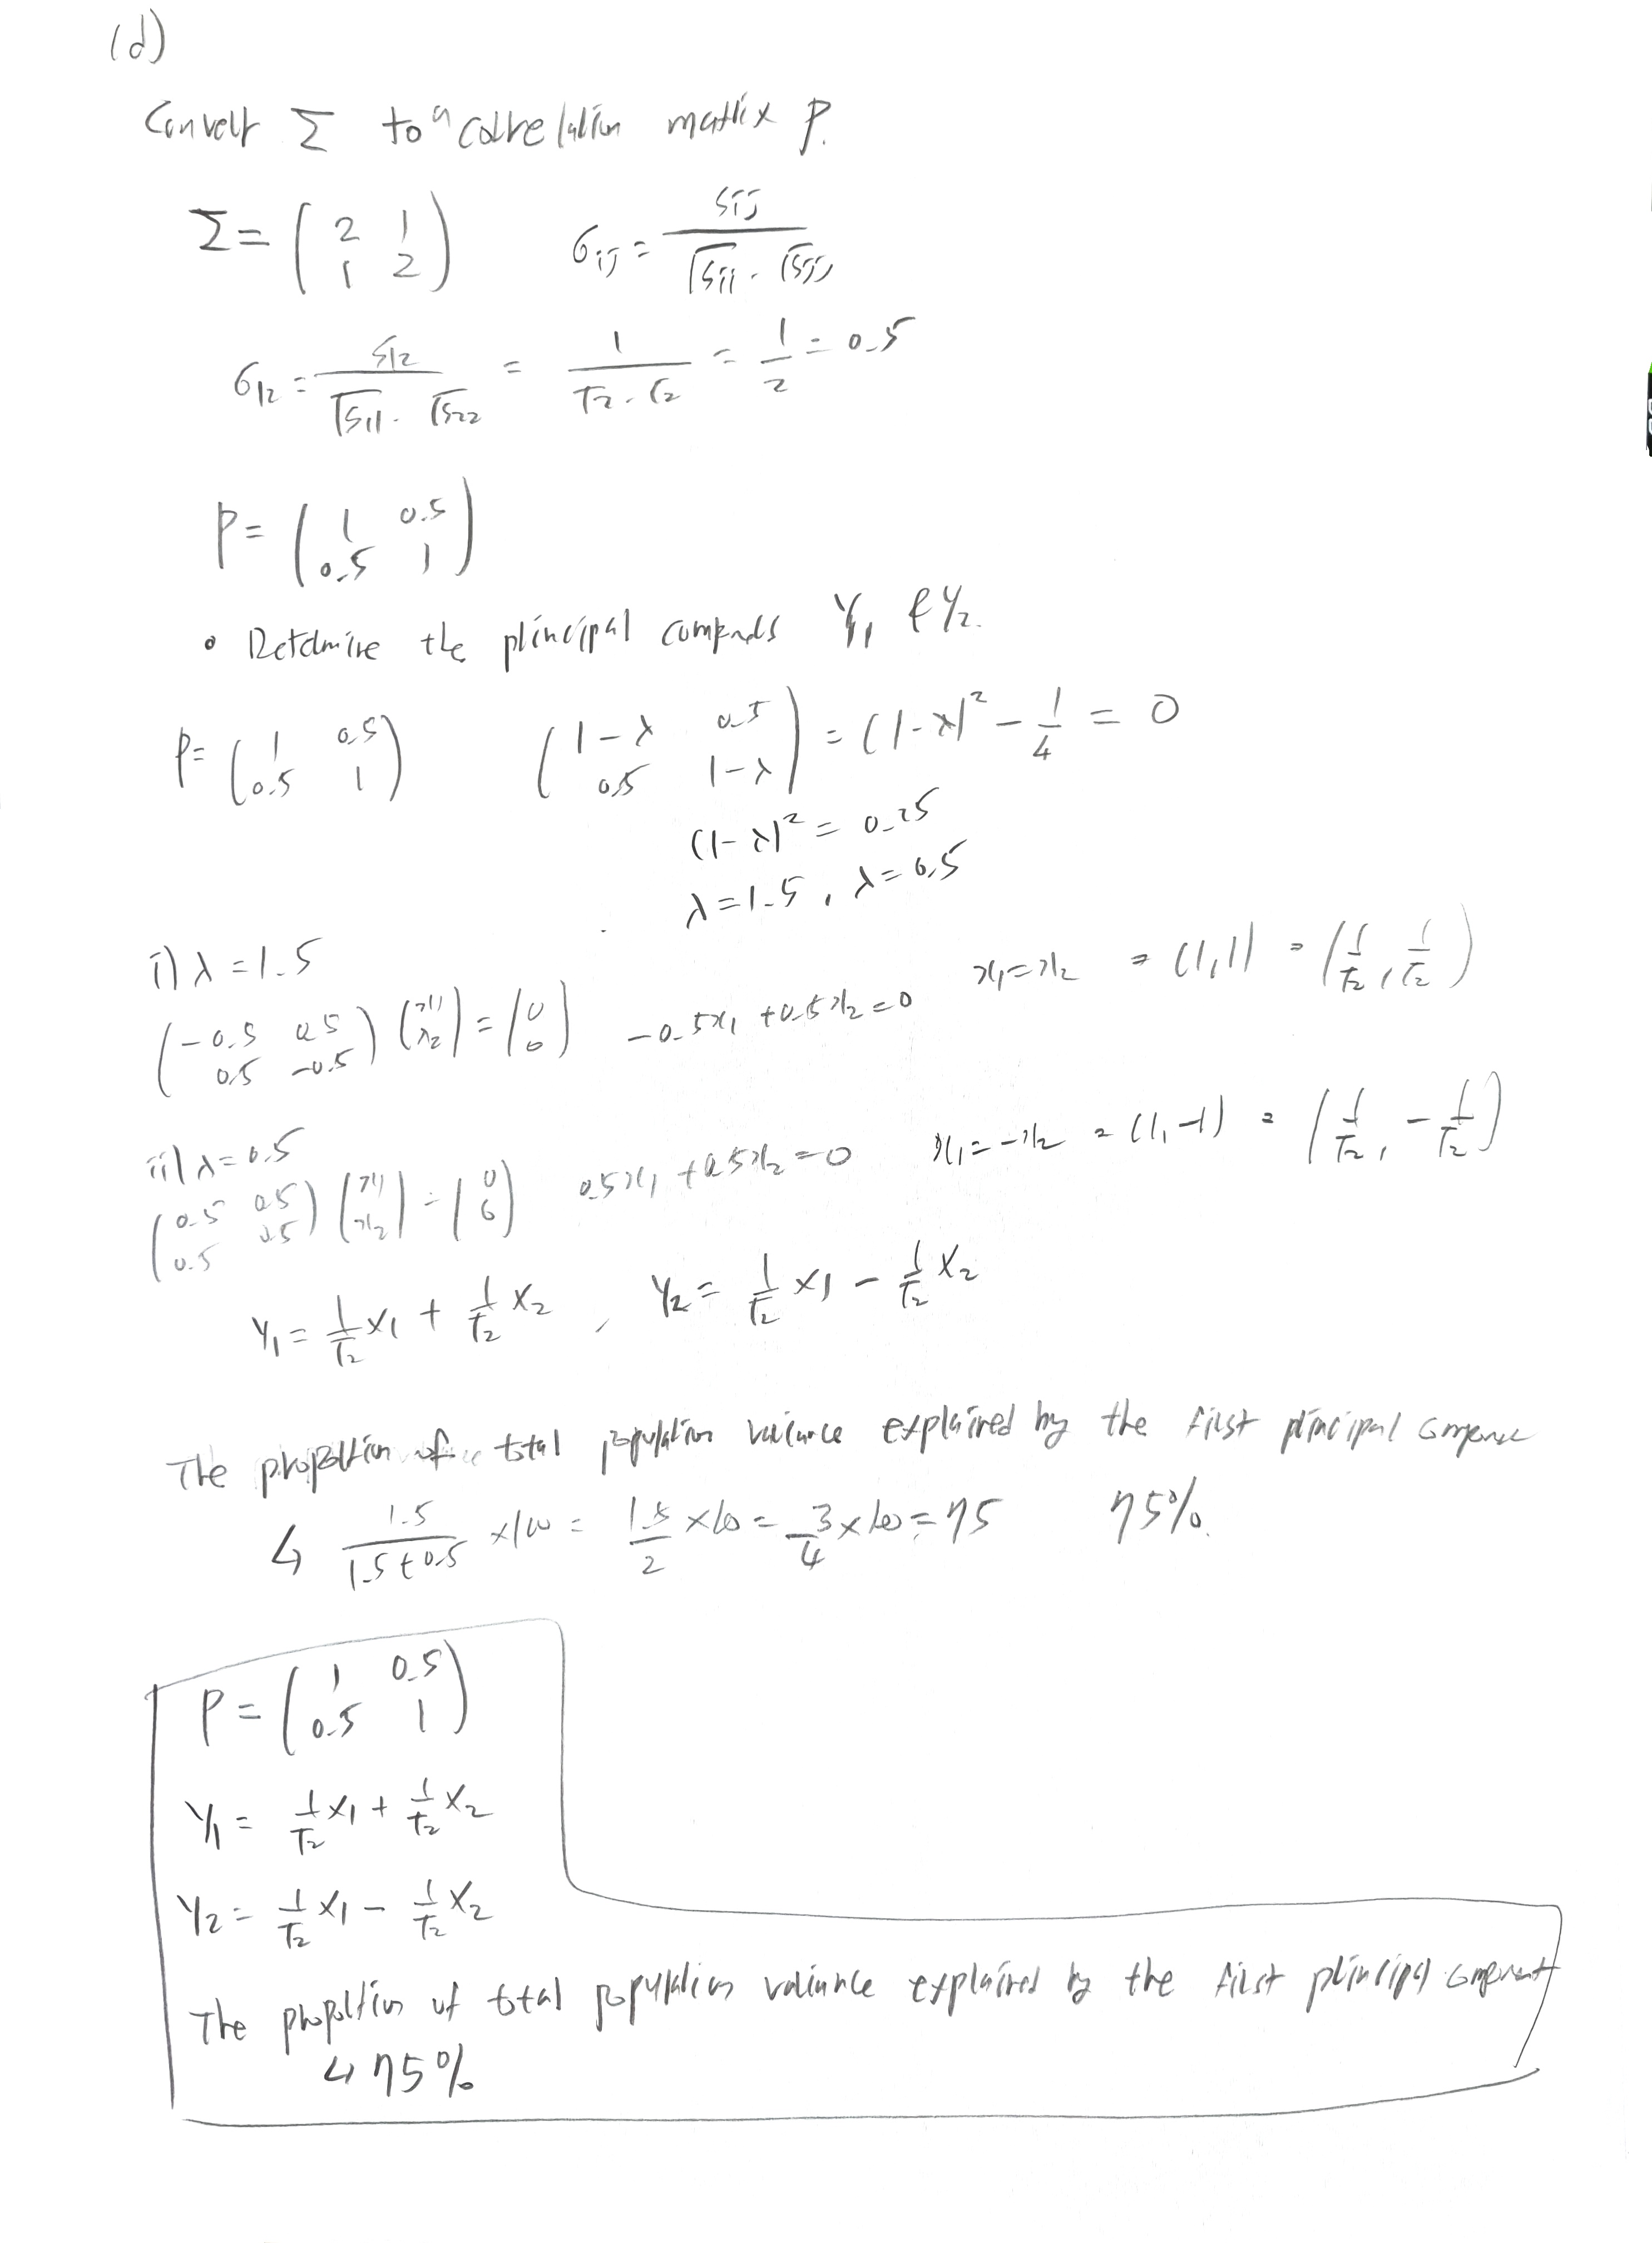 (d)
Convert Σ to a correlation matrix P.
Σ = ( 2 1 ; 1 2 )    σij = sij / (√sii · √sjj)
σ12 = s12 / (√s11 · √s22) = 1 / (√2 · √2) = 1/2 = 0.5
P = ( 1 0.5 ; 0.5 1 )
• Determine the principal Y1 & Y2.
P = ( 1 0.5 ; 0.5 1 )    ( 1-λ 0.5 ; 0.5 1-λ ) = (1-λ)² - 1/4 = 0
(1-λ)² = 0.25
λ = 1.5, λ = 0.5
i) λ = 1.5
( -0.5 0.5 ; 0.5 -0.5 ) ( x1 ; x2 ) = ( 0 ; 0 )    -0.5x1 + 0.5x2 = 0    x1 = x2 = (1,1) = (1/√2, 1/√2)
ii) λ = 0.5
( 0.5 0.5 ; 0.5 0.5 ) ( x1 ; x2 ) = ( 0 ; 0 )    0.5x1 + 0.5x2 = 0    x1 = -x2 = (1,-1) = (1/√2, -1/√2)
Y1 = 1/√2 X1 + 1/√2 X2 , Y2 = 1/√2 X1 - 1/√2 X2
The proportion of total population variance explained by the first principal
↳ 1.5 / (1.5+0.5) ×100 = 1.5/2 ×100 = 3/4 ×100 = 75    75%.
P = ( 1 0.5 ; 0.5 1 )
Y1 = 1/√2 X1 + 1/√2 X2
Y2 = 1/√2 X1 - 1/√2 X2
The proportion of total population variance explained by the first principal component
↳ 75%